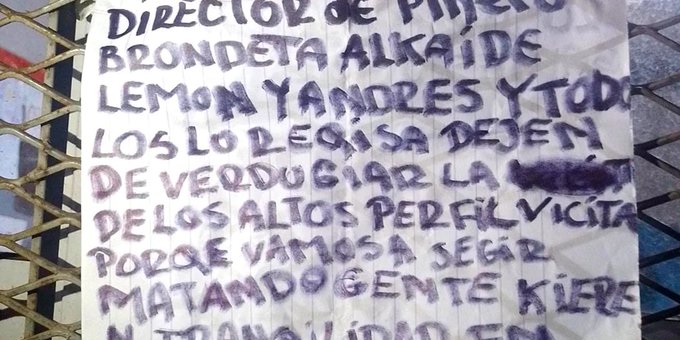 DIRECTOR de PIÑERO
BRONDETA ALKAIDE
LEMON Y ANDRES Y TODO
LOS LO REQISA DEJEN
DE VERDUGIAR LA
DE LOS ALTOS PERFIL VICITA
PORQE VAMOS A SEGIR
MATANDO GENTE KIERE
N TRANQILIDAD EN